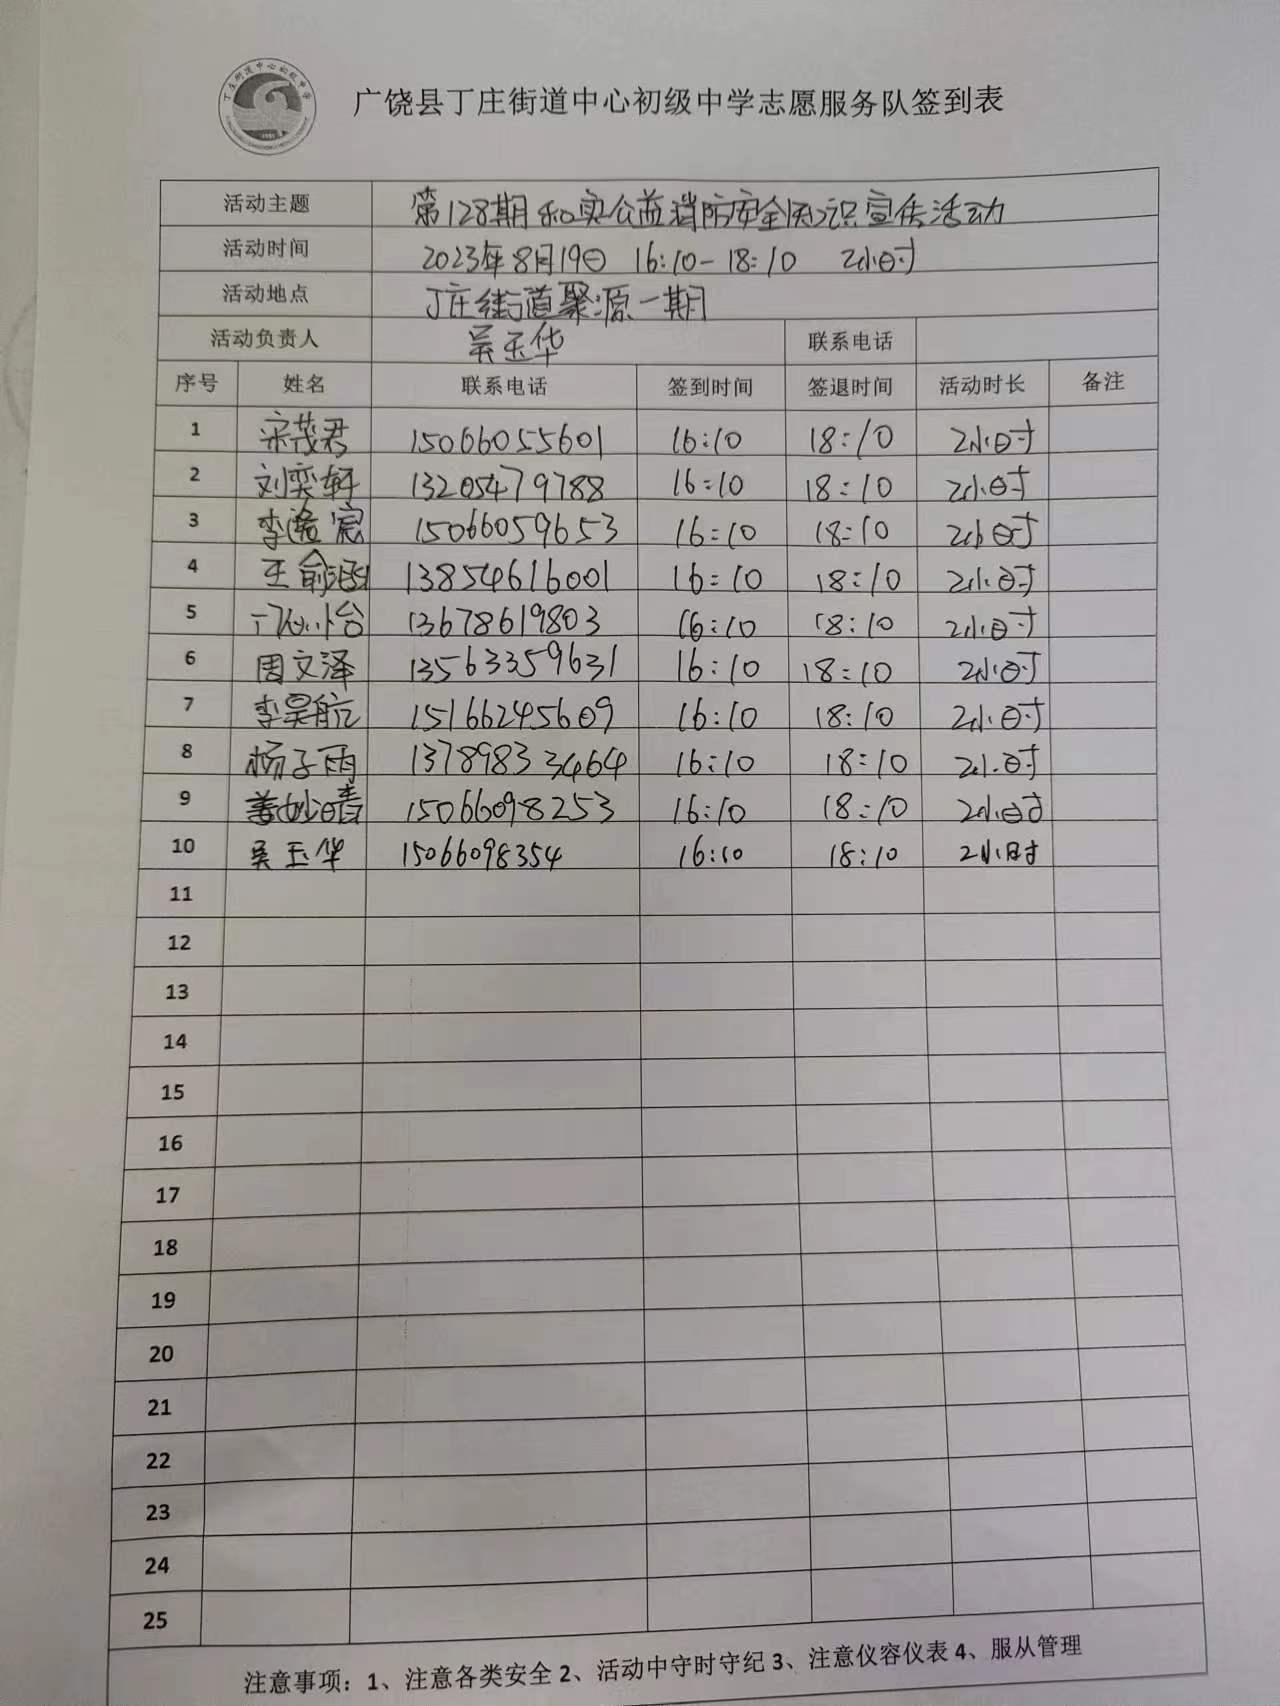 丁庄街道中心初级中学
广饶县丁庄街道中心初级中学志愿服务队签到表
活动主题 第128期和实公益消防安全知识宣传活动
活动时间 2023年8月19日 16:10-18:10 2小时
活动地点 丁庄街道聚源一期
活动负责人 吴玉华 联系电话
序号 姓名 联系电话 签到时间 签退时间 活动时长 备注
1 宋茂君 15066055601 16:10 18:10 2小时
2 刘奕轩 13205479788 16:10 18:10 2小时
3 李 宸 15066059653 16:10 18:10 2小时
4 王俞涵 13854616001 16:10 18:10 2小时
5 13678619803 16:10 18:10 2小时
6 周文泽 13563359631 16:10 18:10 2小时
7 李昊航 15166245609 16:10 18:10 2小时
8 杨子雨 13789833464 16:10 18:10 2小时
9 姜妙晴 15066098253 16:10 18:10 2小时
10 吴玉华 15066098354 16:10 18:10 2小时
11
12
13
14
15
16
17
18
19
20
21
22
23
24
25
注意事项：1、注意各类安全 2、活动中守时守纪 3、注意仪容仪表 4、服从管理